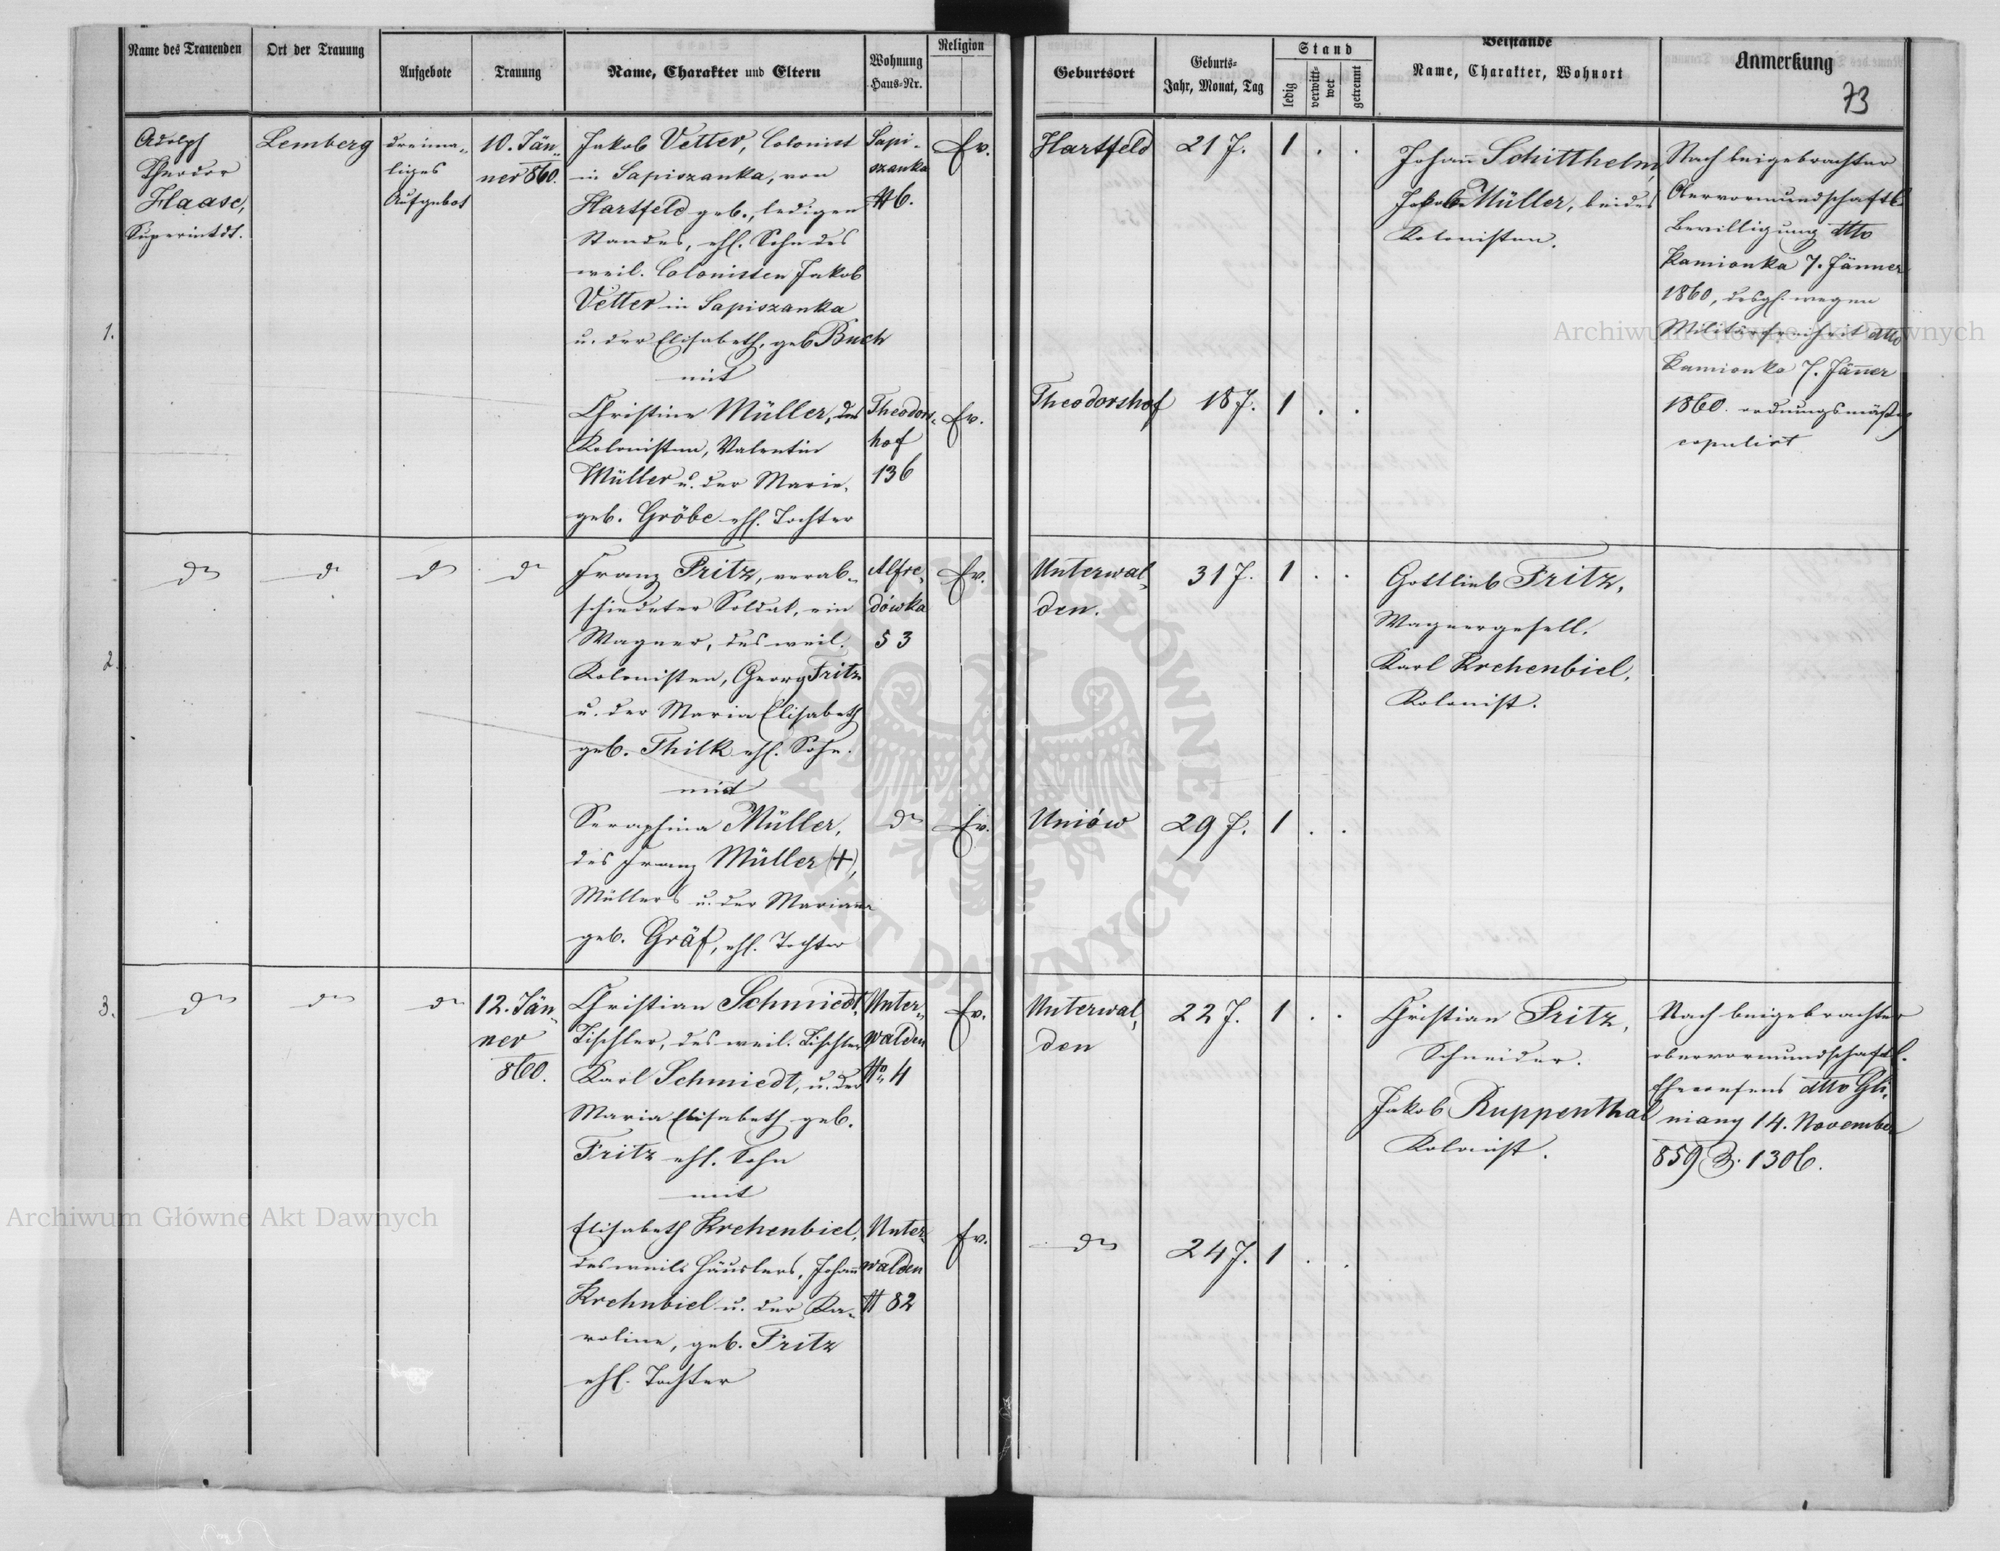 Name des Trauenden
Ort der Trauung
Aufgebote
Trauung
Name, Charakter und Eltern
Wohnung
Haus-Nr.
Religion
Geburtsort
Geburts-
Jahr, Monat, Tag
Stand
ledig
verwitt-
wet
getrennt
Beistände
Name, Charakter, Wohnort
Anmerkung
73
1.
Adolph
Theodor
Haase,
Superintdt.
Lemberg
dreima-
liges
Aufgebot
10. Jän-
ner 860.
Jakob Vetter, Colonist
in Sapiszanka, von
Hartfeld geb., ledigen
Standes, ehl. Sohn des
weil. Colonisten Jakob
Vetter in Sapiszanka
u. der Elisabeth, geb Buch
mit
Christine Müller, des
Kolonisten, Valentin
Müller u. der Marie,
geb. Gröbe ehl. Tochter
Sapi-
szanka
# 6.
Ev.
Theodors-
hof
136
Ev.
Hartfeld
21 J.
1
Theodorshof
18 J.
1
Johann Schitthelm,
Jakob Müller, beides
Kolonisten.
Nach beigebrachter
Obervormundschaftl.
Bewilligung dtto
Kamionka 7. Jänner
1860, desgl. wegen
Militärfreiheit dtto
Kamionka 7. Jänner
1860. ordnungsmäßig
copulirt
2.
dto
dto
dto
dto
Franz Fritz, verab-
schiedeter Soldat, ein
Wagner, des weil.
Kolonisten, Georg Fritz
u. der Maria Elisabeth
geb. Thilk ehl. Sohn.
mit
Seraphina Müller,
des Franz Müller (+),
Müllers u. der Marianna
geb. Gräf, ehl. Tochter
Alfre-
dówka
53
Ev.
dto
Ev.
Unterwal-
den.
31 J.
1
Uniów
29 J.
1
Gottlieb Fritz,
Wagnergesell.
Karl Krehenbiel,
Kolonist.
3.
dto
dto
dto
12. Jän-
ner
860.
Christian Schmiedt,
Tischler, des weil. Tischlers
Karl Schmiedt, u. der
Maria Elisabeth geb.
Fritz ehl. Sohn
mit
Elisabeth Krehenbiel,
des weils Häuslers, Johann
Krehnbiel u. der Ka-
roline, geb. Fritz
ehl. Tochter
Unter-
walden
No 4
Ev.
Unter-
walden
# 82
Ev.
Unterwal-
den
22 J.
1
dto
24 J.
1
Christian Fritz,
Schneider.
Jakob Ruppenthal
Kolonist.
Nach beigebrachter
obervormundschaftl.
Eheconsens dtto Gli-
niany 14. November
859 Z. 1306.
Archiwum Główne Akt Dawnych
Archiwum Główne Akt Dawnych